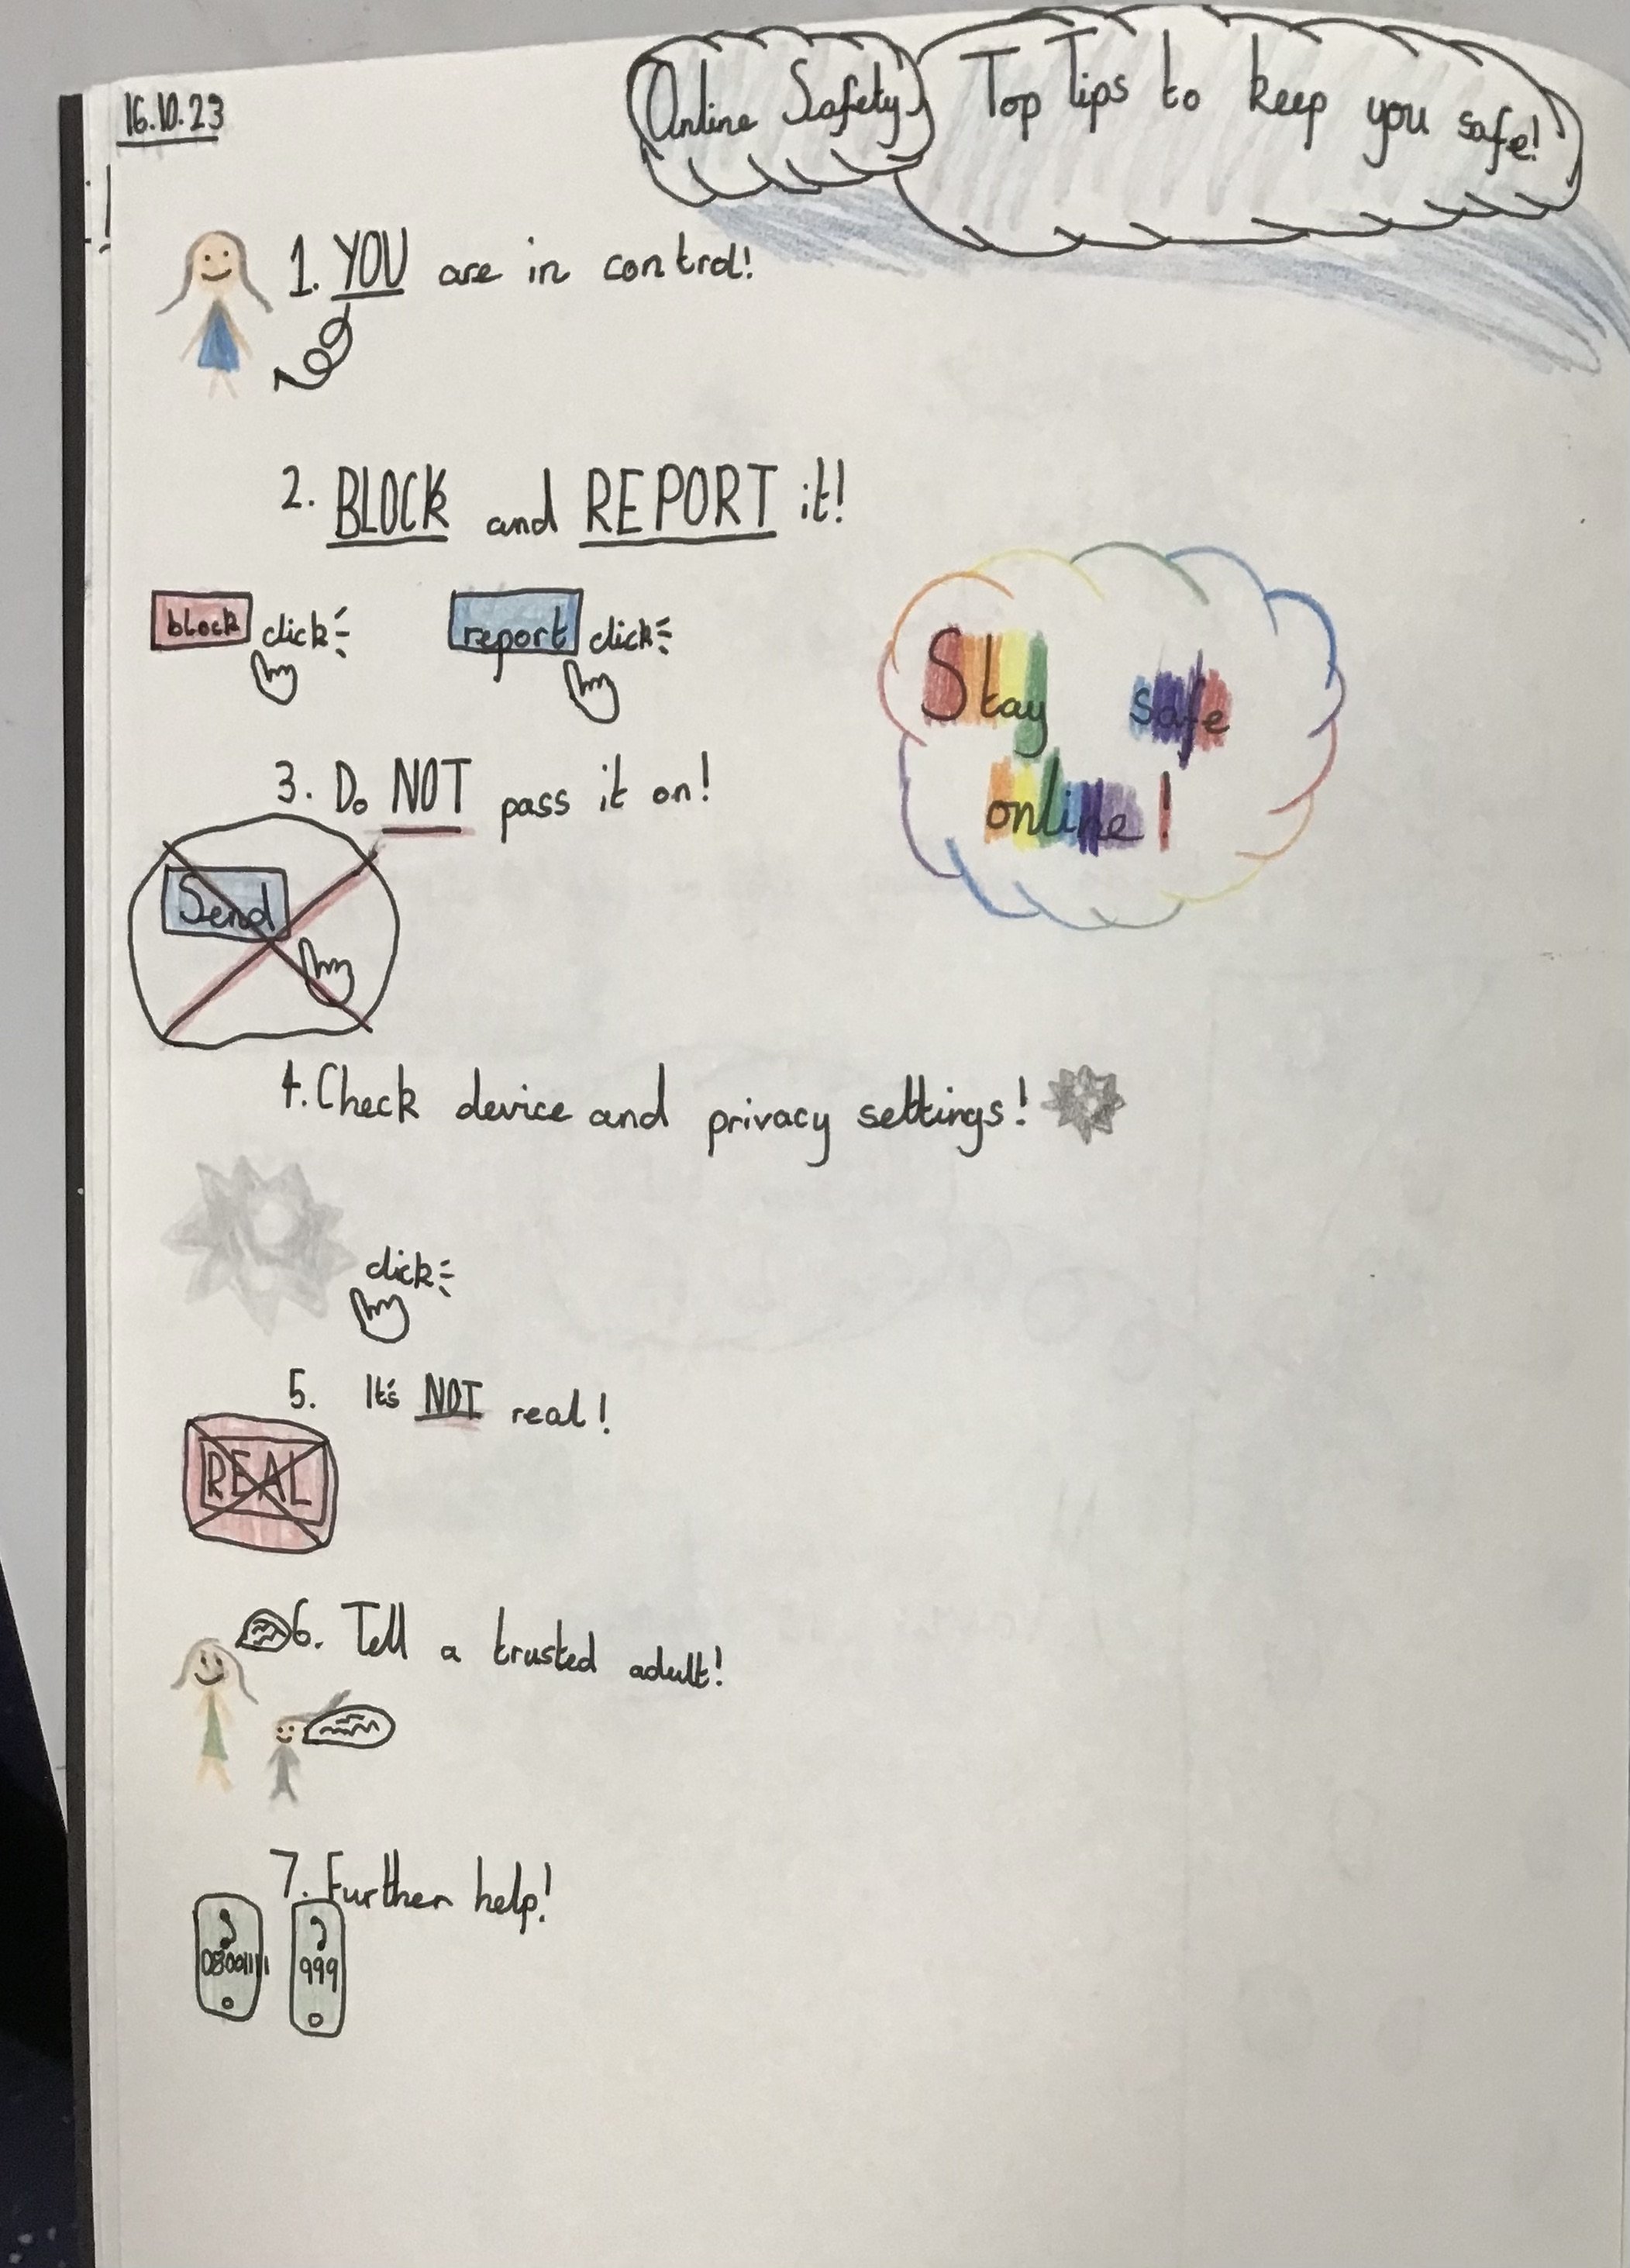 16.10.23
Online Safety
Top Tips to keep you safe!
1. YOU are in control!
2. BLOCK and REPORT it!
block click
report click
Stay safe
online!
3. Do NOT pass it on!
Send
4. Check device and privacy settings!
click
5. It's NOT real!
REAL
6. Tell a trusted adult!
7. Further help!
08001111
999